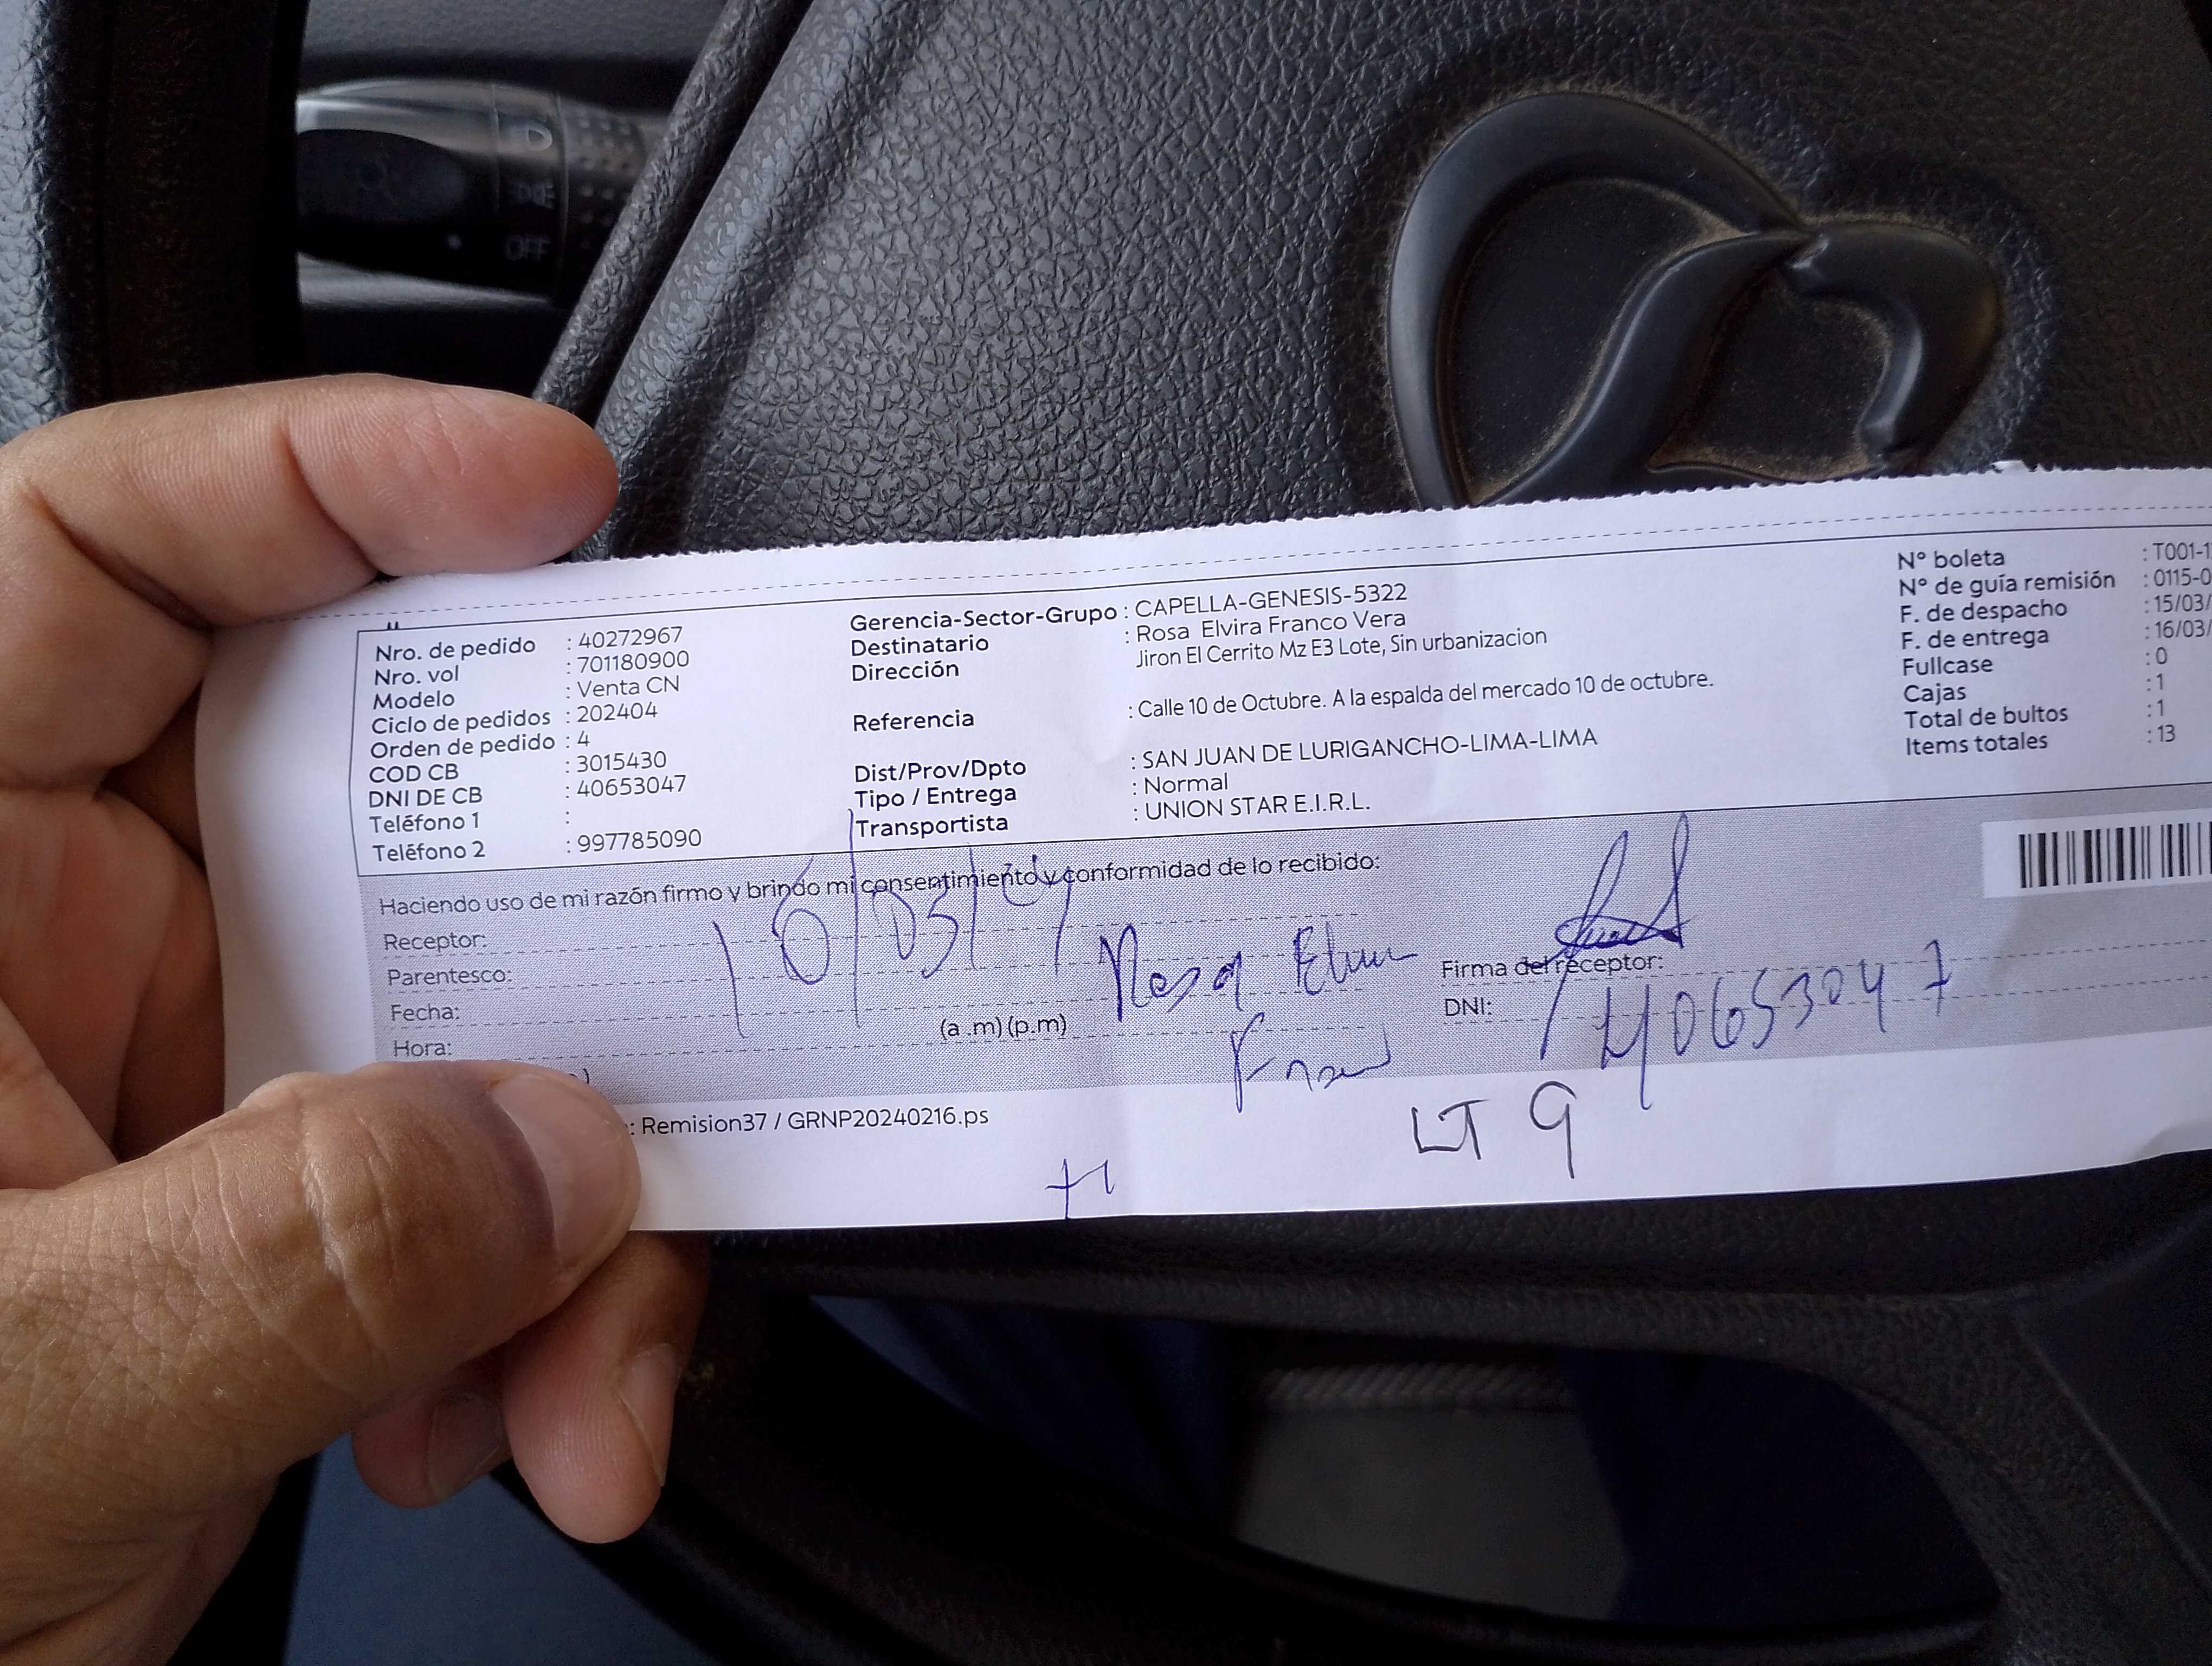 OFF
Nro. de pedido : 40272967
Nro. vol : 701180900
Modelo : Venta CN
Ciclo de pedidos : 202404
Orden de pedido : 4
COD CB : 3015430
DNI DE CB : 40653047
Teléfono 1 :
Teléfono 2 : 997785090
Gerencia-Sector-Grupo : CAPELLA-GENESIS-5322
Destinatario : Rosa Elvira Franco Vera
Dirección Jiron El Cerrito Mz E3 Lote, Sin urbanizacion
Referencia : Calle 10 de Octubre. A la espalda del mercado 10 de octubre.
Dist/Prov/Dpto : SAN JUAN DE LURIGANCHO-LIMA-LIMA
Tipo / Entrega : Normal
Transportista : UNION STAR E.I.R.L.
N° boleta : T001-1
N° de guía remisión : 0115-0
F. de despacho : 15/03/
F. de entrega : 16/03/
Fullcase : 0
Cajas : 1
Total de bultos : 1
Items totales : 13
Haciendo uso de mi razón firmo y brindo mi consentimiento y conformidad de lo recibido:
Receptor:
Parentesco:
Fecha:
Hora: (a .m) (p.m)
16/03/24
Rosa
Firma del receptor:
DNI: 40653047
: Remision37 / GRNP20240216.ps
LT 9